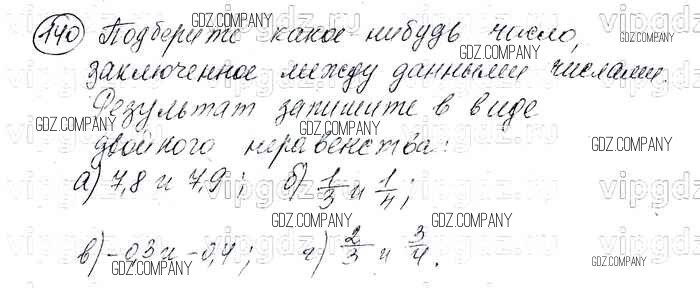 140 Подберите какое-нибудь число,
заключенное между данными числами.
Результат запишите в виде
двойного неравенства:
а) 7,8 и 7,9; б) 1/3 и 1/4;
в) -0,3 и -0,4; г) 2/3 и 3/4.
GDZ.COMPANY
GDZ.COMPANY
GDZ.COMPANY
GDZ.COMPANY
GDZ.COMPANY
GDZ.COMPANY
GDZ.COMPANY
GDZ.COMPANY
GDZ.COMPANY
GDZ.COMPANY
GDZ.COMPANY